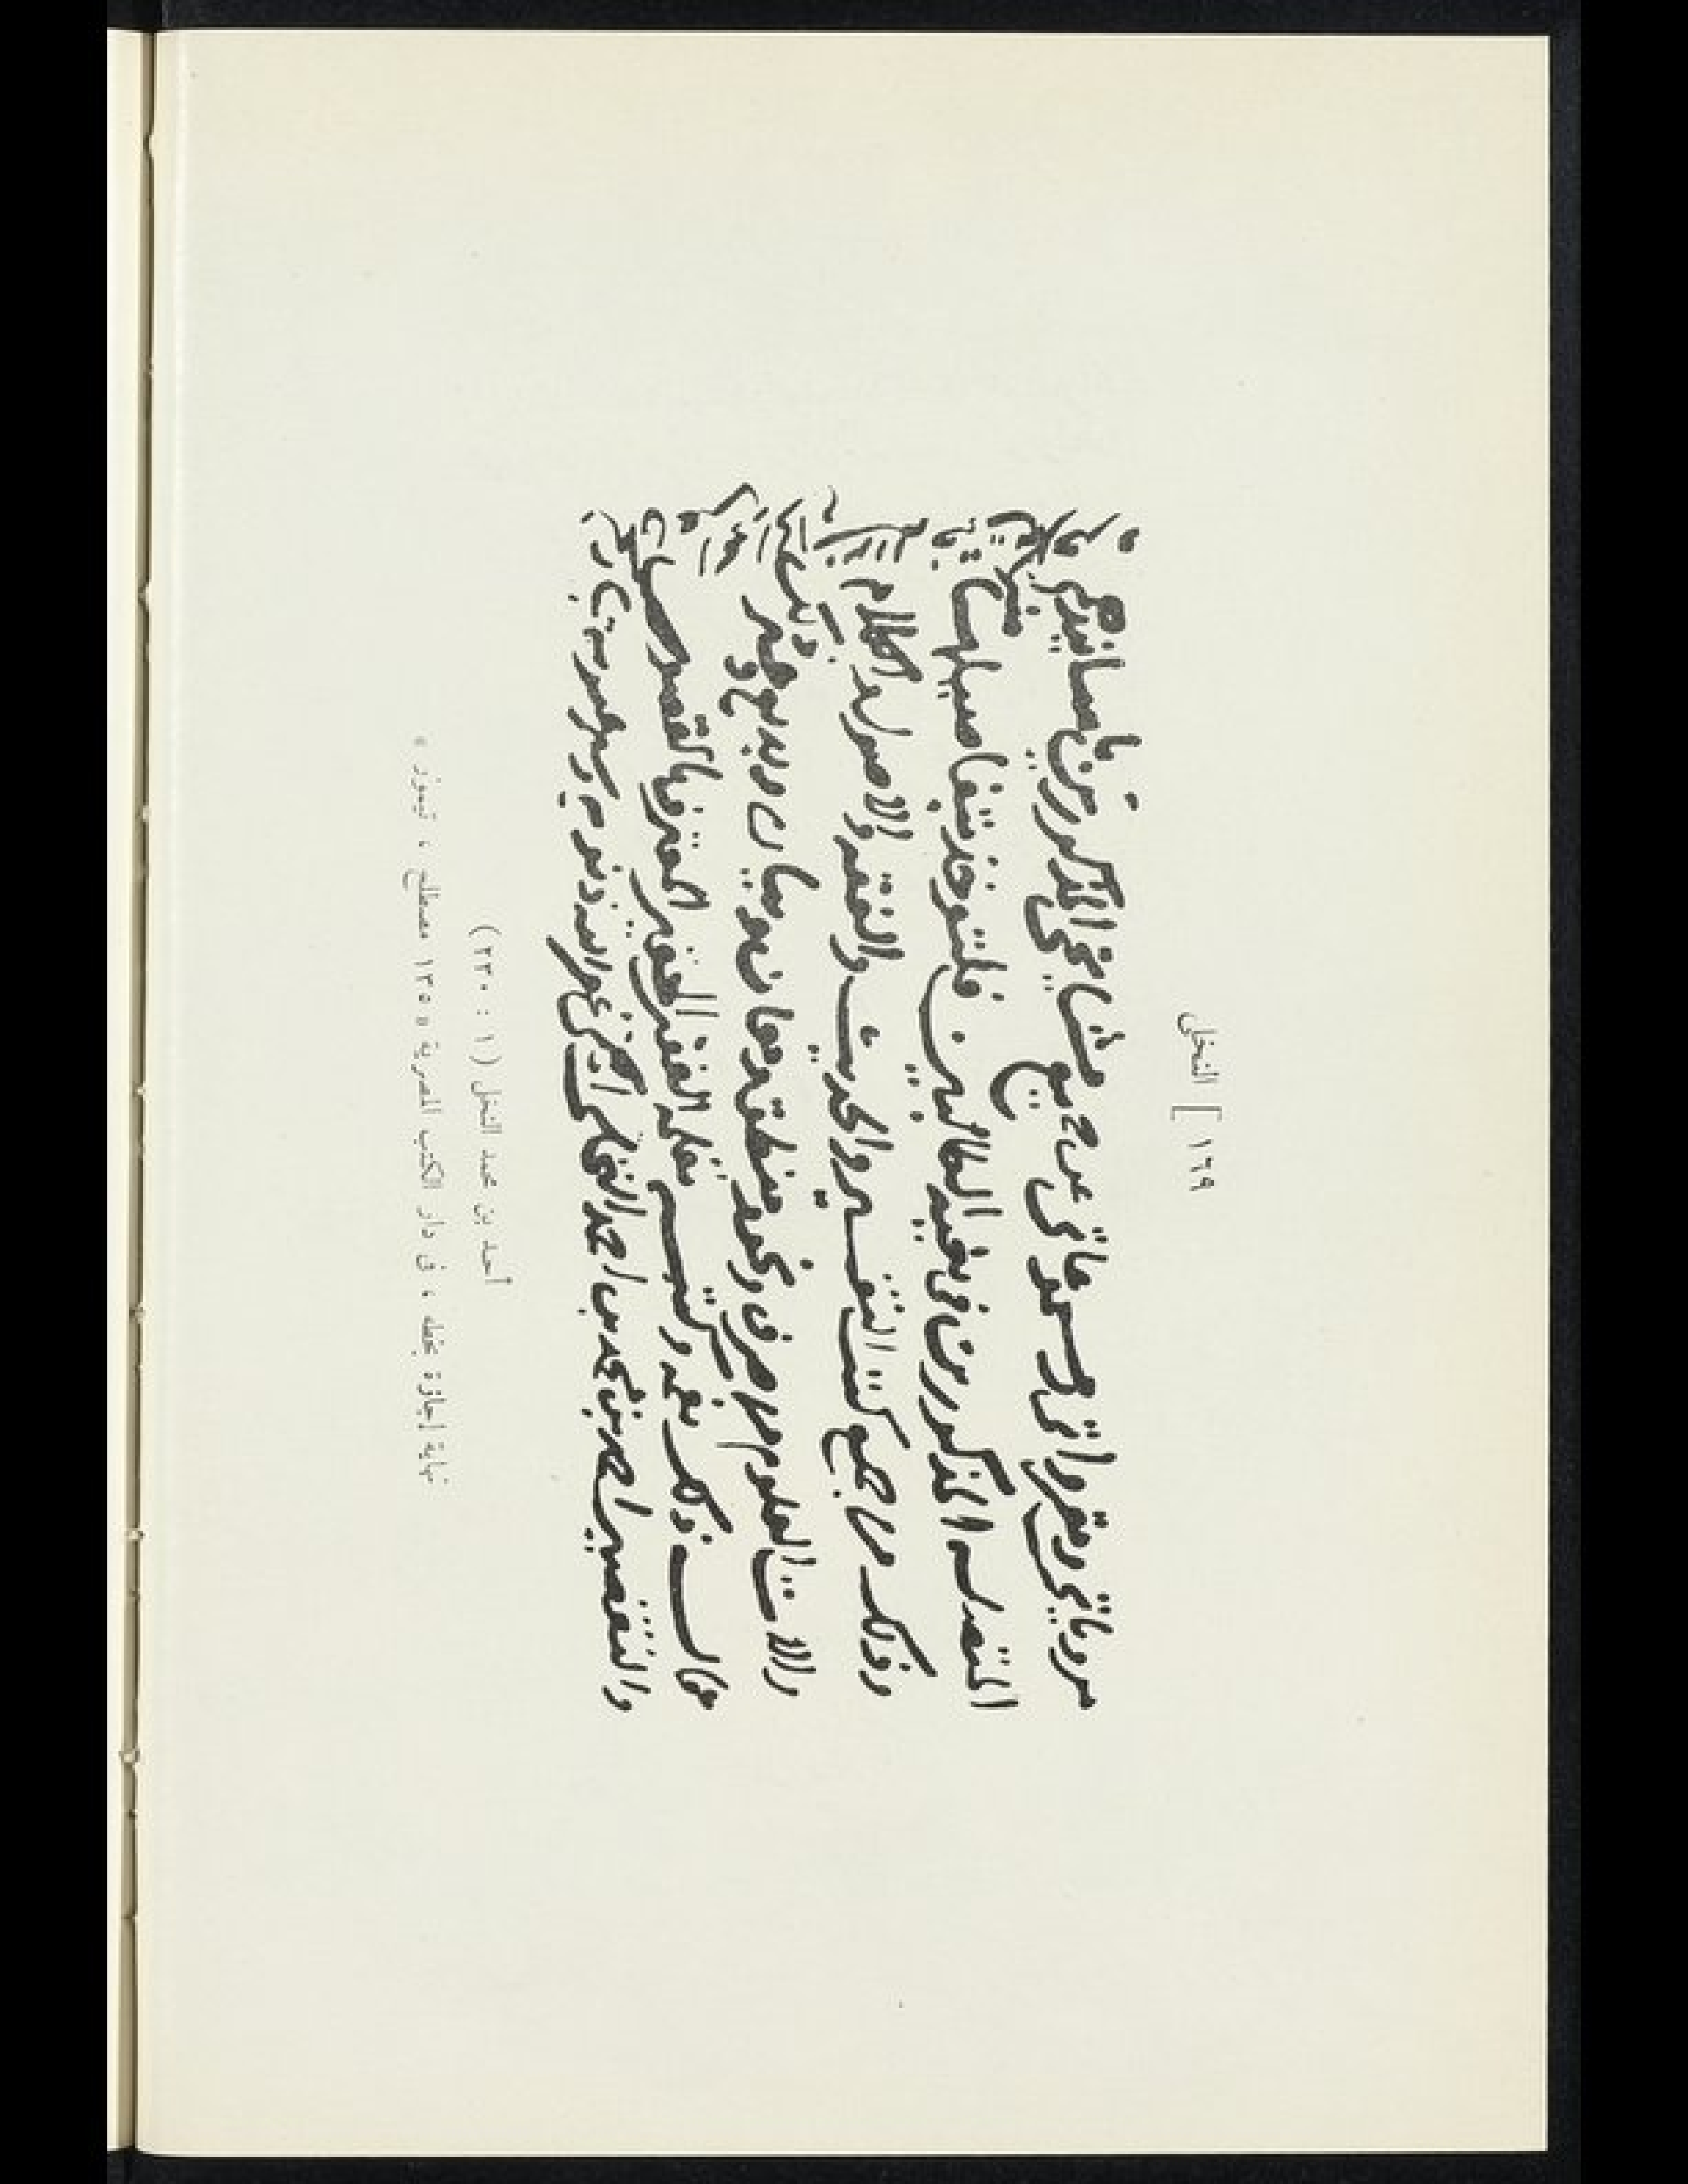 ١٦٩ ] النخلى
مروياتي ومقرواتي ومسموعاتي عن جميع مشايخي المذكورين باسانيدهم
المتصله المذكورين في بغية الطالبين فلتوخذ بتفاصيلها
وذلك من جميع كتب التفسير والحديث والفقه والاصول والكلام
والات العلوم من صرف ونحو ومنطق ومعان وبيان وبديع وغير ذلك
قال ذلك بفمه وكتبه بقلمه الفقير الحقير المعترف بالقصور
والتقصير احمد بن محمد بن احمد النخلي المكي غفر الله ذنوبه وستر عيوبه
أحمد بن محمد النخلى (١ : ٢٣٠)
نهاية إجازة بخطه ، فى دار الكتب المصرية « ١٣٥ مصطلح ، تيمور »